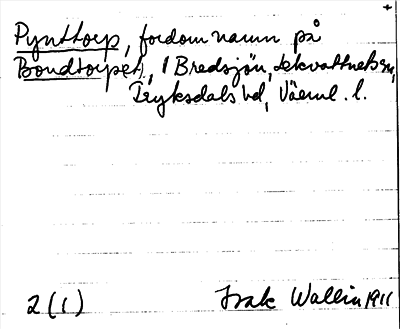 +
Pynttorp, fordom namn på
Bondtorpet, 1 Bredsjön, Lekvattnets sn,
Fryksdals hd, Värml. l.
2 (1) Isak Wallin 1911